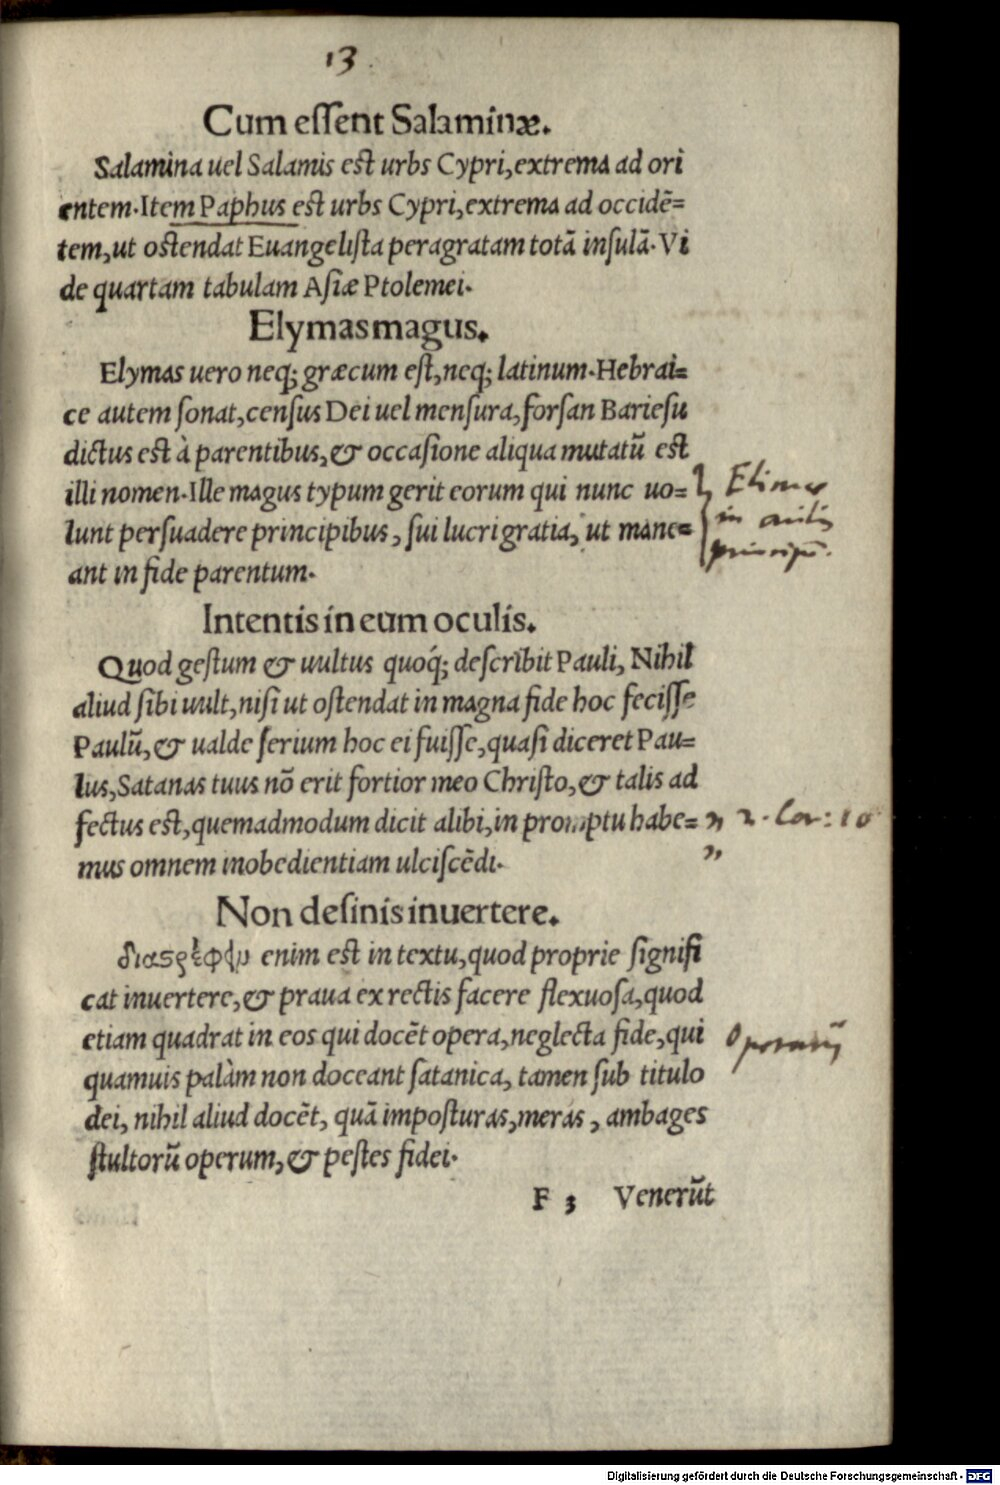 13
Cum essent Salaminæ.
Salamina uel Salamis est urbs Cypri, extrema ad ori
entem. Item Paphus est urbs Cypri, extrema ad occidē=
tem, ut ostendat Euangelista peragratam totā insulā. Vi
de quartam tabulam Asiæ Ptolemei.
Elymas magus.
Elymas uero neq; græcum est, neq; latinum. Hebrai=
ce autem sonat, census Dei uel mensura, forsan Bariesu
dictus est à parentibus, & occasione aliqua mutatū est
illi nomen. Ille magus typum gerit eorum qui nunc uo=
lunt persuadere principibus, sui lucri gratia, ut mane=
ant in fide parentum.
Elimas
in
Intentis in eum oculis.
Quod gestum & uultus quoq́; describit Pauli, Nihil
aliud sibi uult, nisi ut ostendat in magna fide hoc fecisse
Paulū, & ualde serium hoc ei fuisse, quasi diceret Pau=
lus, Satanas tuus nō erit fortior meo Christo, & talis ad
fectus est, quemadmodum dicit alibi, in promptu habe= 2. Cor: 10
mus omnem inobedientiam ulciscēdi.
Non desinis inuertere.
διαςρέφων enim est in textu, quod proprie signifi
cat inuertere, & praua ex rectis facere flexuosa, quod
etiam quadrat in eos qui docēt opera, neglecta fide, qui
quamuis palàm non doceant satanica, tamen sub titulo
dei, nihil aliud docēt, quā imposturas, meras, ambages
stultorū operum, & pestes fidei.
F 3 Venerūt
Digitalisierung gefördert durch die Deutsche Forschungsgemeinschaft - DFG